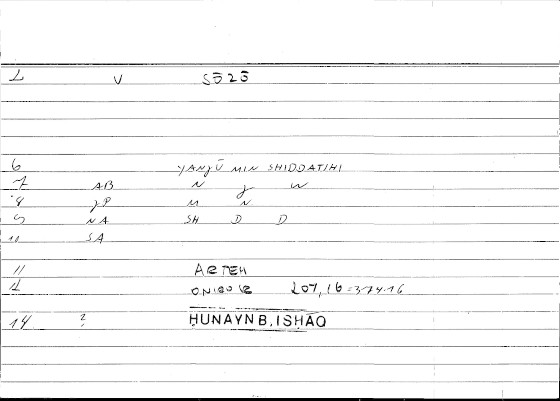 1 V SŌZŌ
6 YANJŪ MIN SHIDDATIHI
7 AB N J W
8 JP M N
9 NA SH D D
10 SA
11 ARTEM
ONIROKR 207,16=374.16
14 ? ḤUNAYN B. ISḤĀQ